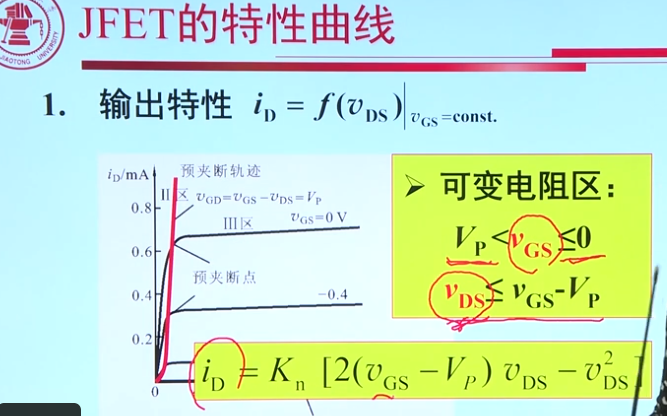 JFET的特性曲线
JIAOTONG UNIVERSITY
1. 输出特性 i_D = f(v_DS)|v_GS=const.
i_D/mA
预夹断轨迹
II区 v_GD=v_GS－v_DS=V_P
0.8
III区 v_GS=0 V
0.6
预夹断点
0.4
−0.4
0.2
0
➢ 可变电阻区：
V_P<v_GS≤0
v_DS≤ v_GS-V_P
i_D = K_n [2(v_GS − V_P) v_DS − v_DS^2]